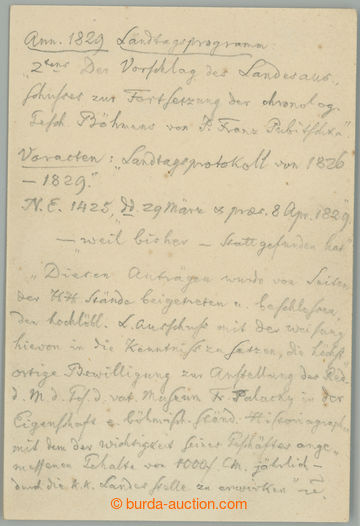 Ann. 1829 Landtagsprogramm
"2tens Der Vorschlag des Landesaus-
schusses zur Fortsetzung der chronolog.
Gesch. Böhmens von P. Franz Pubitschka"
Voracten: "Landtagsprotokoll von 1826
– 1829."
N. E. 1425, dd 29 März & præs. 8 Apr. 1829
— weil bisher — Statt gefunden hat"
"Diesen Anträgen wurde von Seiten
der HH Stände beigetreten u. beschlossen
den hochlöbl. L. Ausschuß mit der Weisung
hievon in die Kenntniß zu setzen, die höchst-
ortige Bewilligung zur Anstellung des Red.
d. M. d. Ges. d. vat. Museum Fr. Palacky in der
Eigenschaft e. böhmisch. ständ. Historiographen
mit dem der Wichtigkeit seines Geschäftes ange-
messenen Gehalte von 1000 f CM. jährlich —
durch die k.k. Landesstelle zu erwirken"
© burda-auction.com